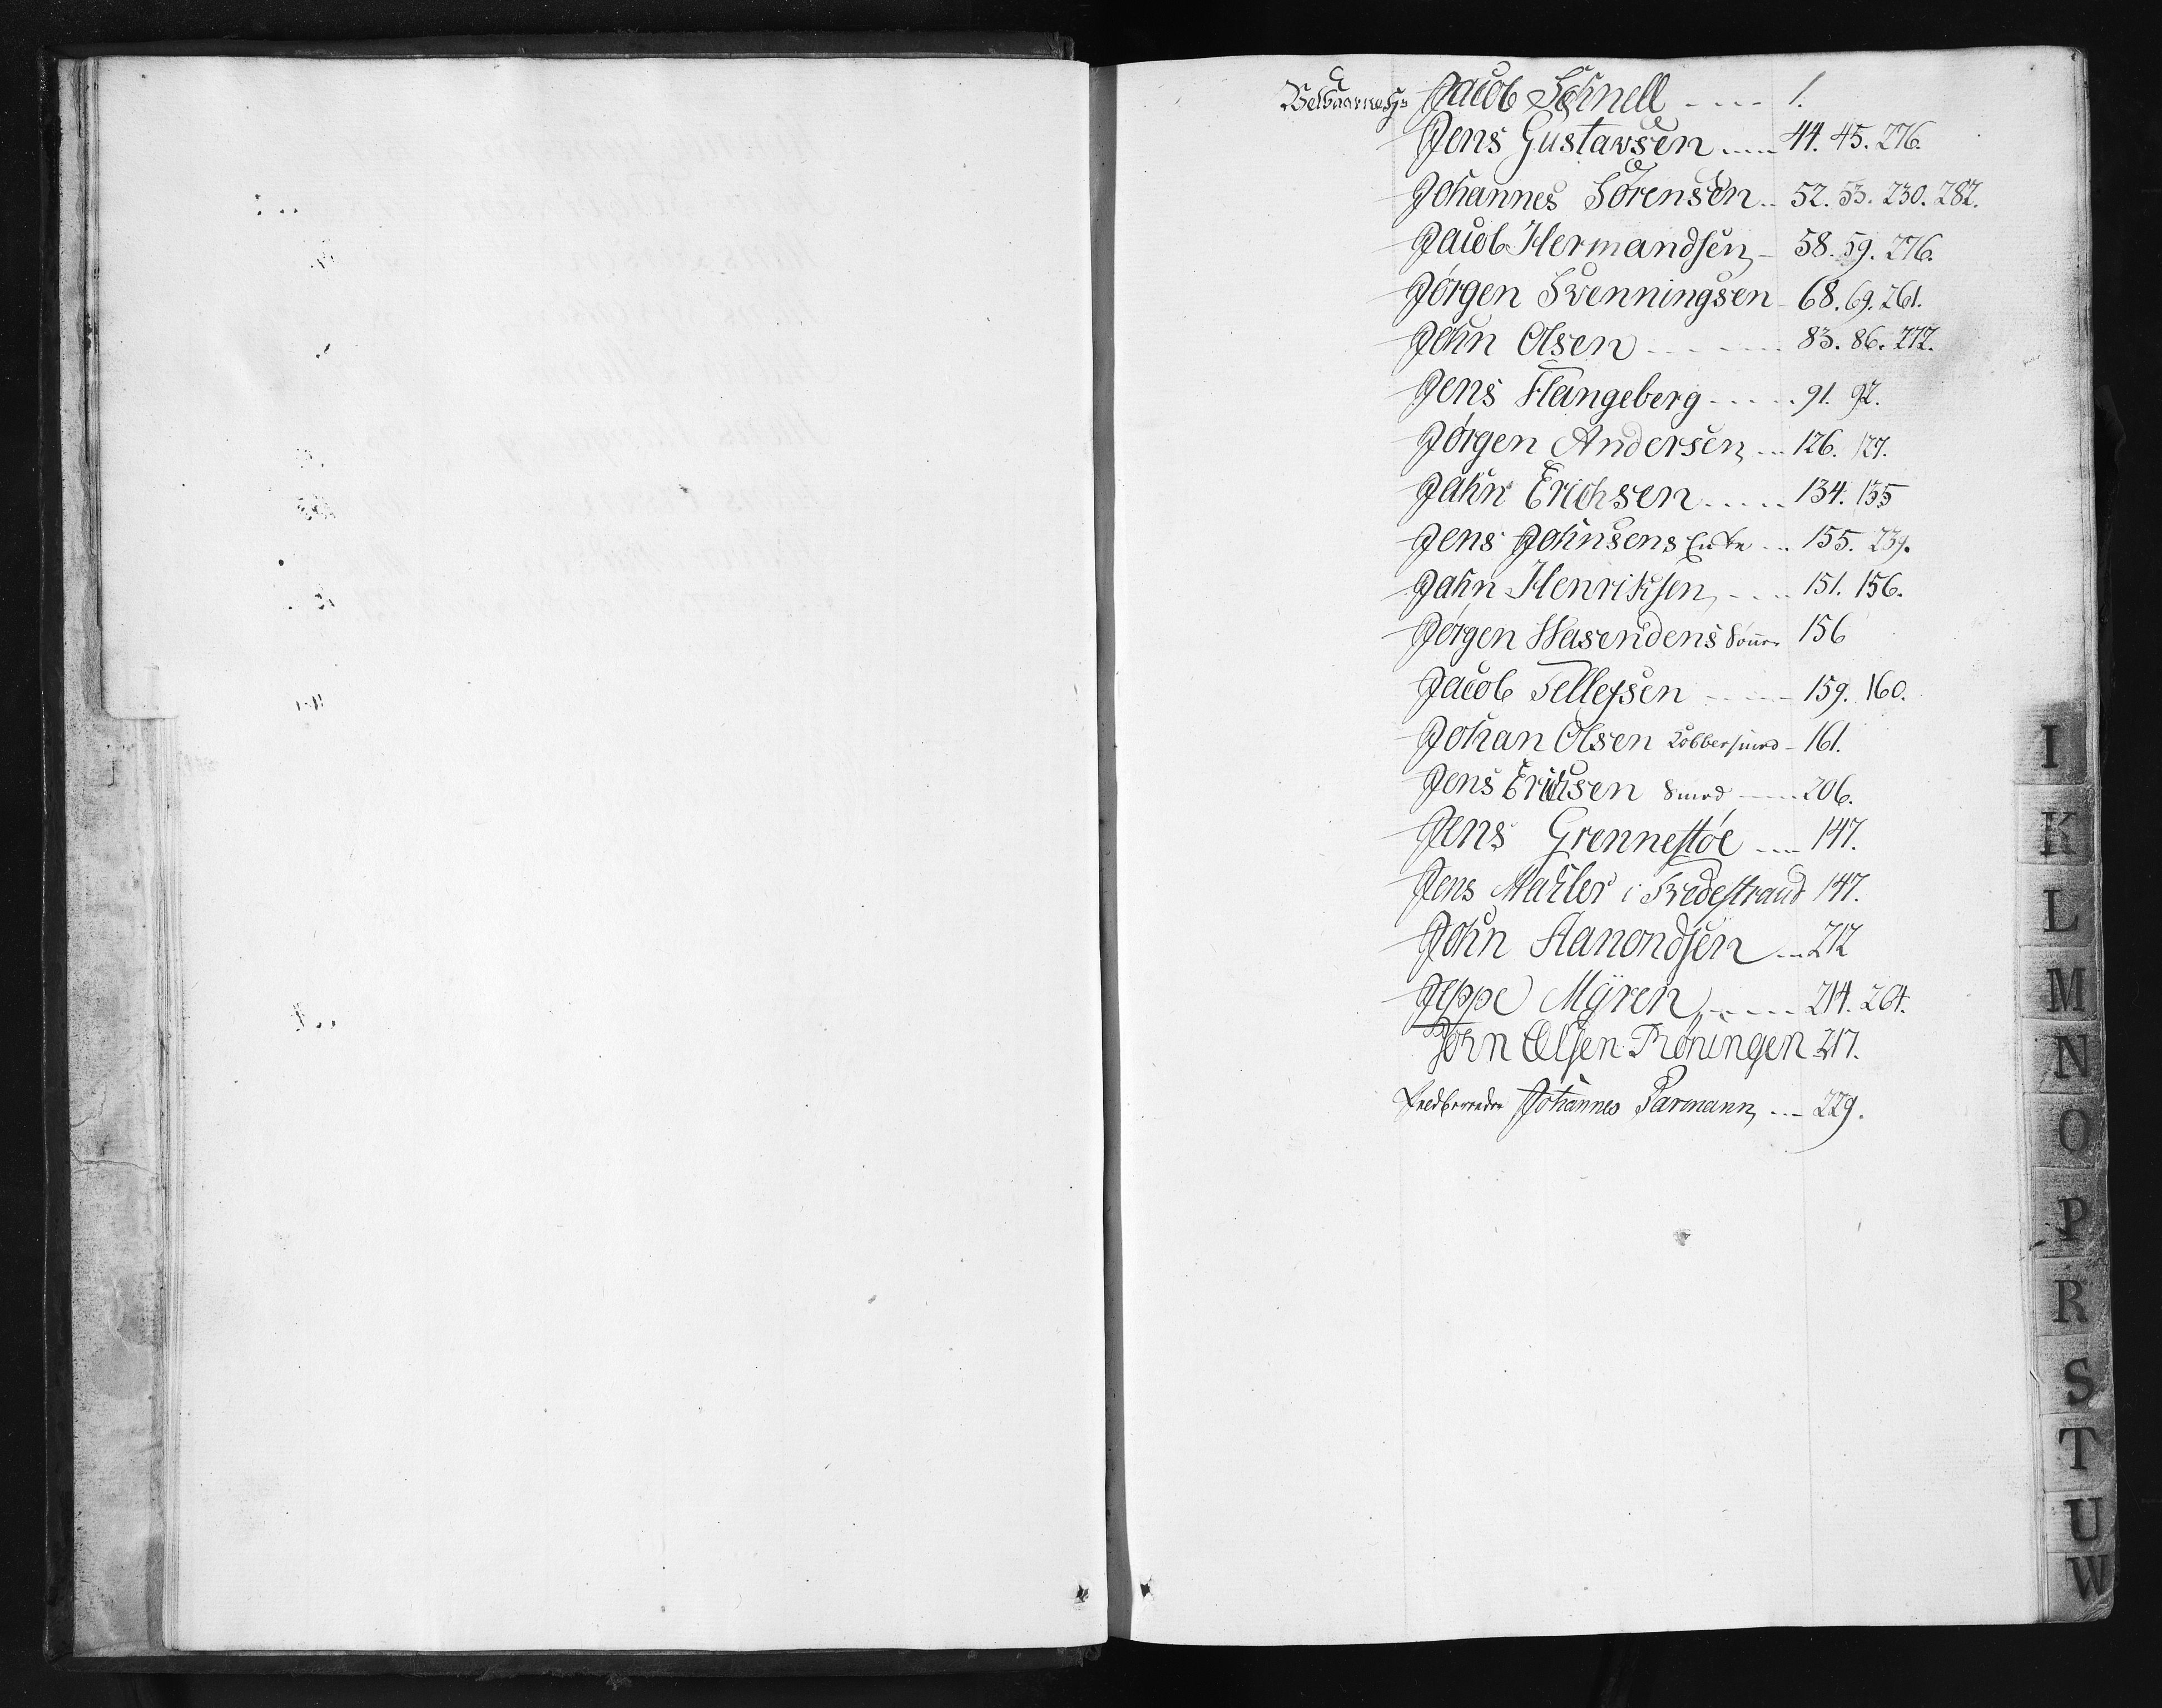 Jacob Schnell ---- 1.
Jens Gustavsen ---- 44. 45. 276.
Johannes Sørensen -- 52. 53. 230. 282.
Jacob Hermandsen - 58. 59. 276.
Jørgen Svenningsen - 68. 69. 261.
John Olsen ---- 83. 86. 272.
Jens Hangeberg ---- 91. 92.
Jørgen Andersen --- 126. 127.
Jahn Erichsen ----- 134. 135
Jens Johnsens Enke -- 155. 239.
Jahn Henriksen ---- 151. 156.
Jørgen Hasendens 156
Jacob Tellefsen ---- 159. 160.
Johan Olsen Kobbersmed - 161.
Jens Erichsen Smed ---- 206.
Jens Grennestøe ---- 147.
Jens Mahler i Tvedestrand 147.
John Aanondsen --- 212
Jeppe Myren ----- 214. 264.
John Olsen Frøningen 217.
Johannes Parmann --- 229.
I
K
L
M
N
O
P
R
S
T
U
W